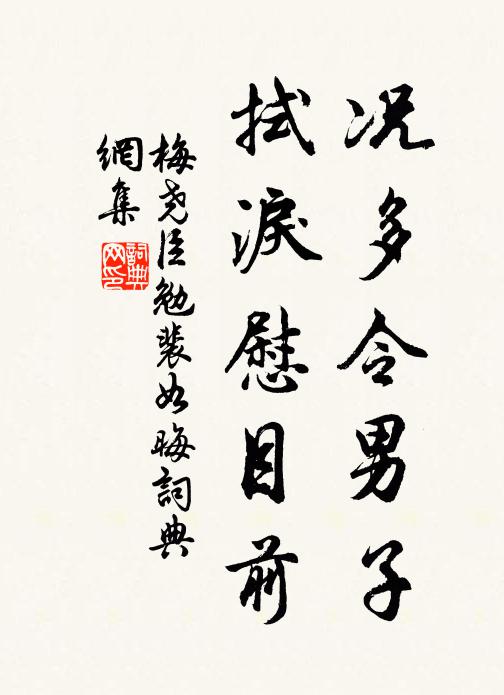 况多令男子
拭淚慰目前
梅尧臣勉裴如晦詞典
網集
詞典
网印